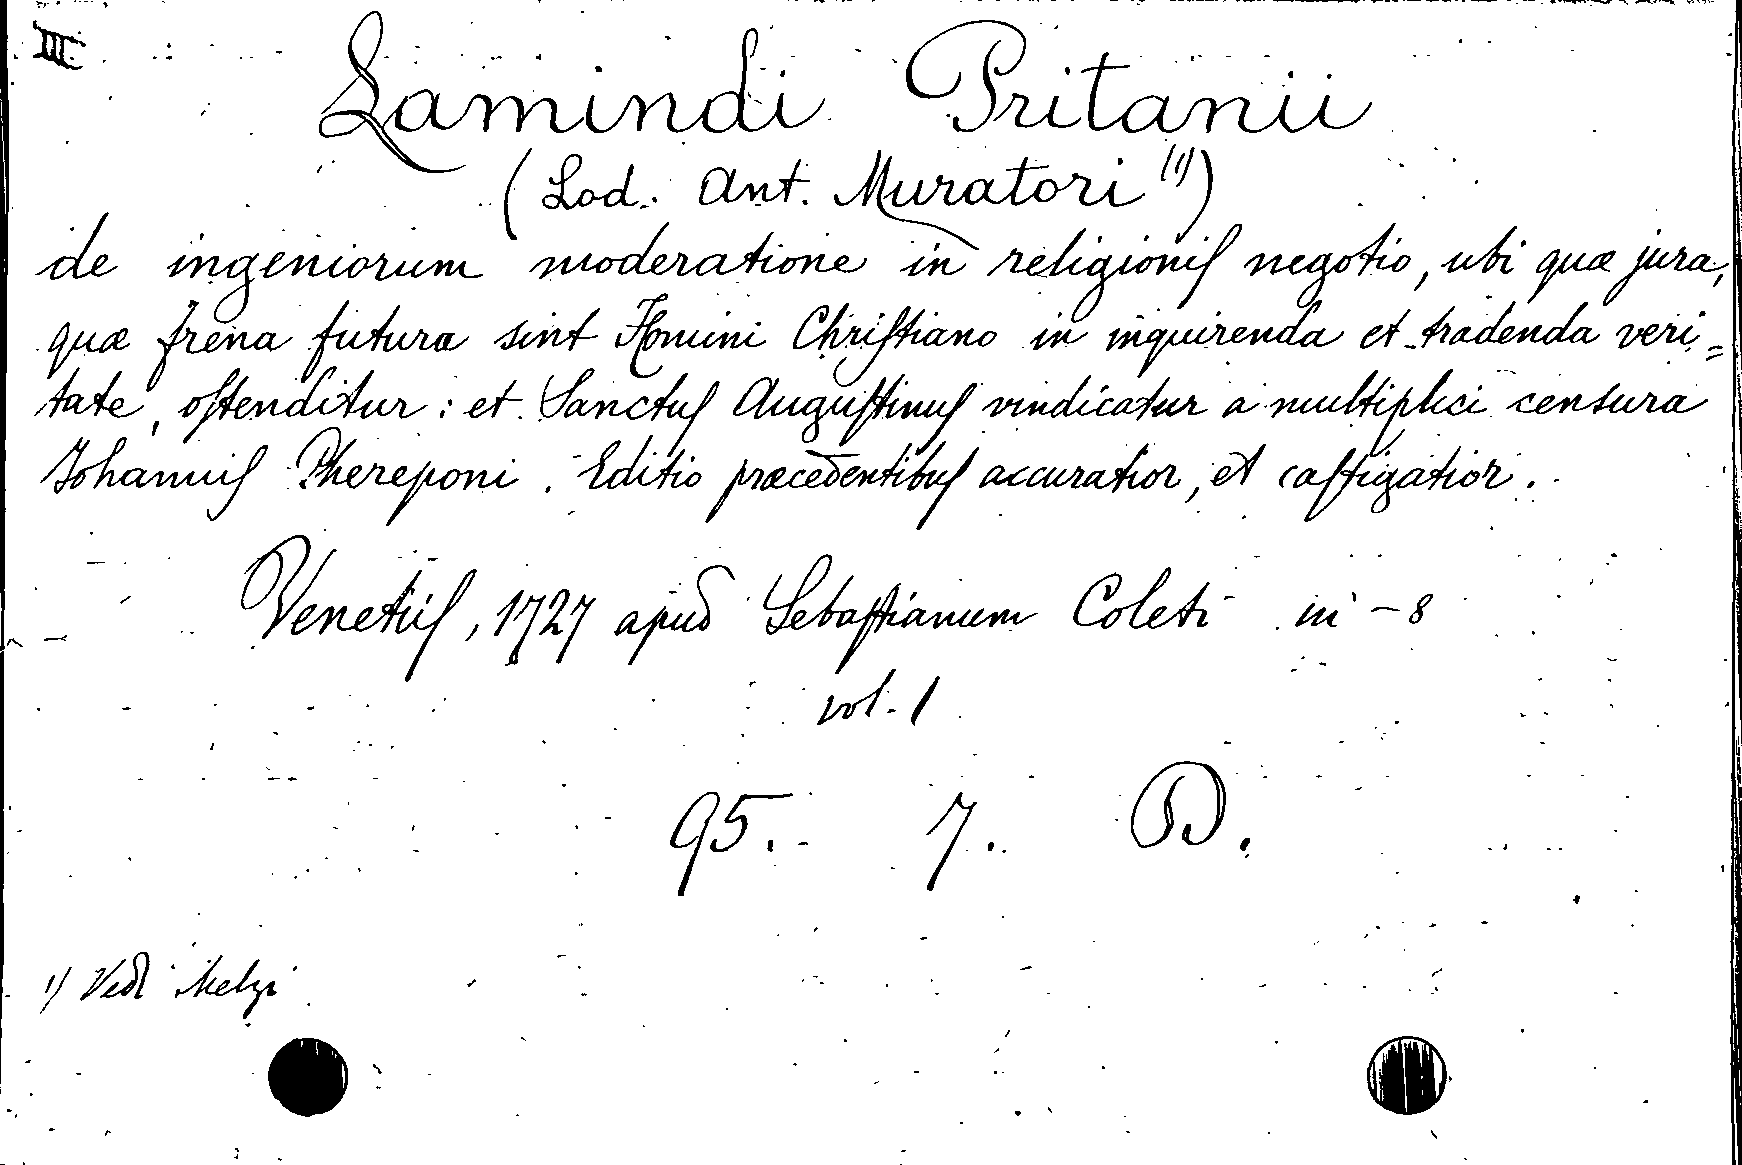 III
Lamindi Pritanii
(Lod. Ant. Muratori (1))
de ingeniorum moderatione in religionis negotio, ubi quæ jura,
quæ frena futura sint Homini Christiano in inquirenda et tradenda veri=
tate, ostenditur: et Sanctus Augustinus vindicatur a multiplici censura
Johannis Phereponi. Editio præcedentibus accuratior, et castigatior.
Venetiis, 1727 apud Sebastianum Coleti in-8
vol. 1
95. 7. D.
1) Vedi Melzi